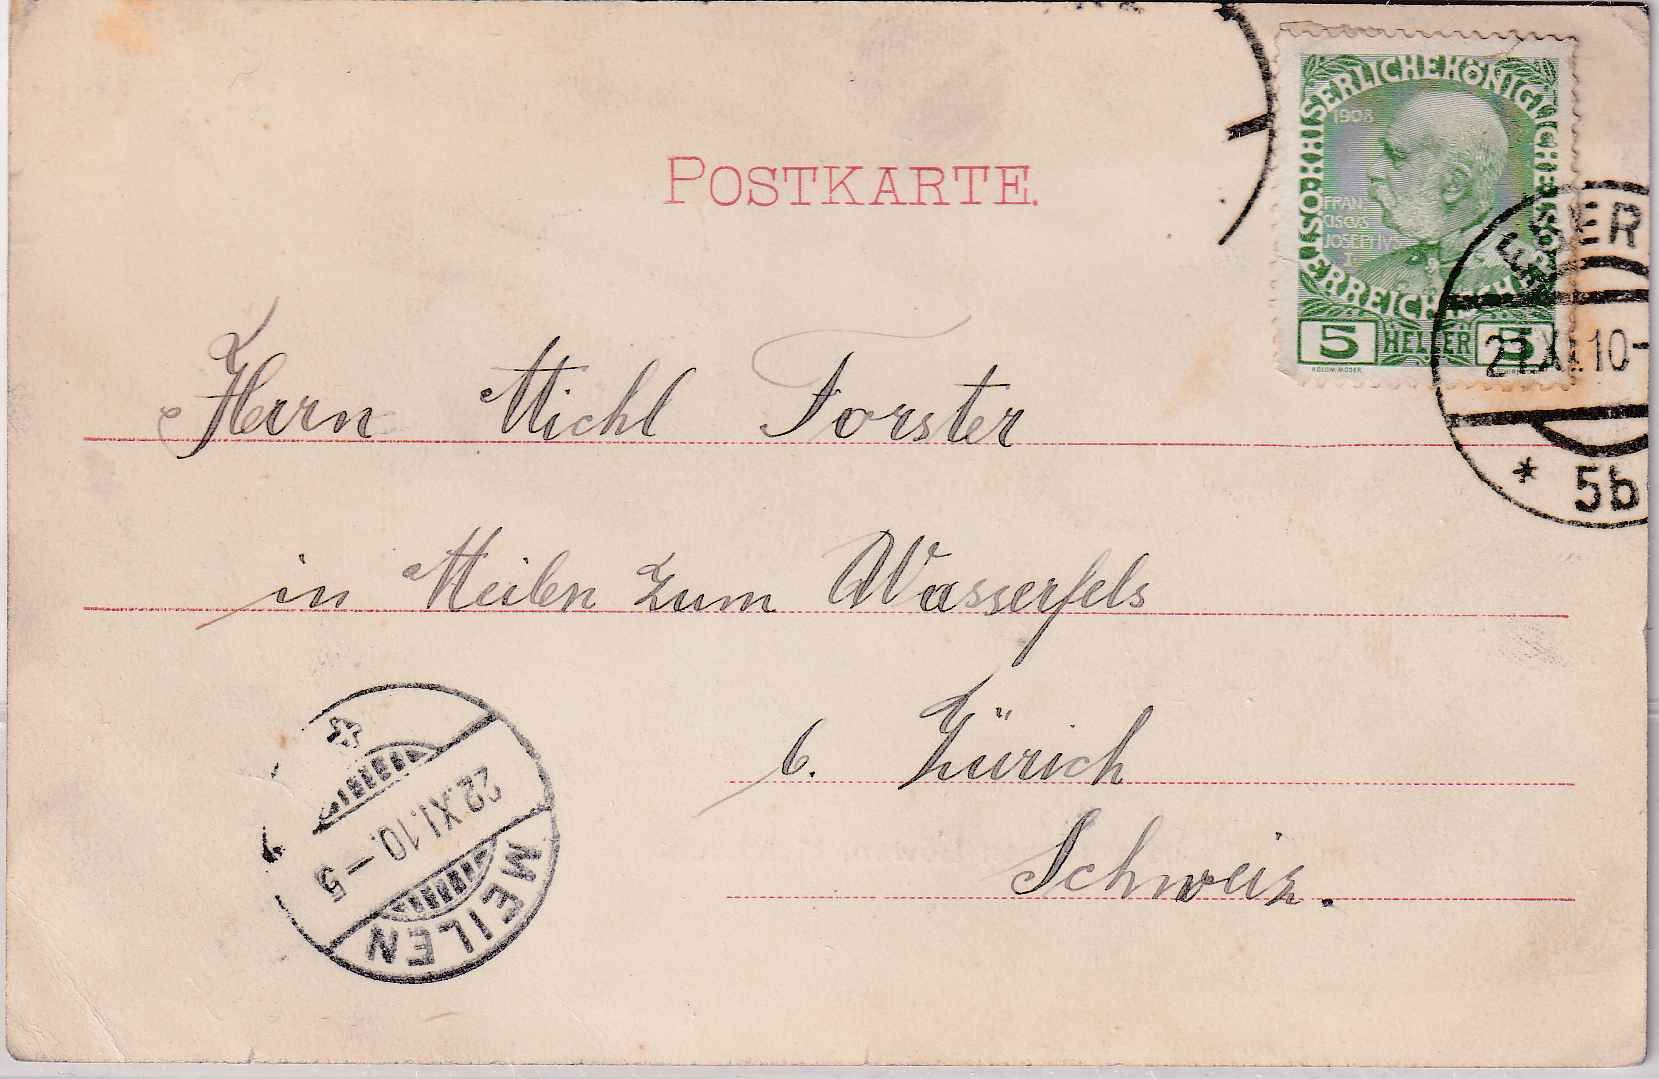 POSTKARTE.
KAISERLICHE KÖNIGLICHE ÖSTERREICHISCHE
1908
FRAN
CISCVS
JOSEPHVS
I
5 HELLER 5
KOLOM. MOSER
10-
* 5b
Herrn Michl Forster
in Meilen zum Wasserfels
b. Zürich
Schweiz.
22.XI.10.-5
MEILEN